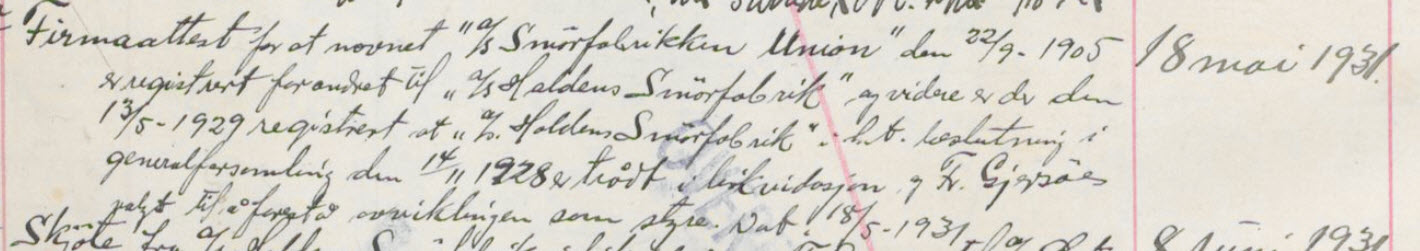 Firmaattest for at navnet "a/s Smörfabrikken Union" den 22/9-1905 18 mai 1931.
er registrert forandret til "a/s Haldens Smörfabrik" og videre er der den
13/5-1929 registrert at "a/s. Haldens Smörfabrik" i h.t. beslutning i
generalforsamling den 14/11 1928 er trådt i likvidasjon og Fr. Gjersöes
valgt til å forestå avviklingen som styre. Dat. 18/5-1931
Skjöte fra a/s 8 juni 1931